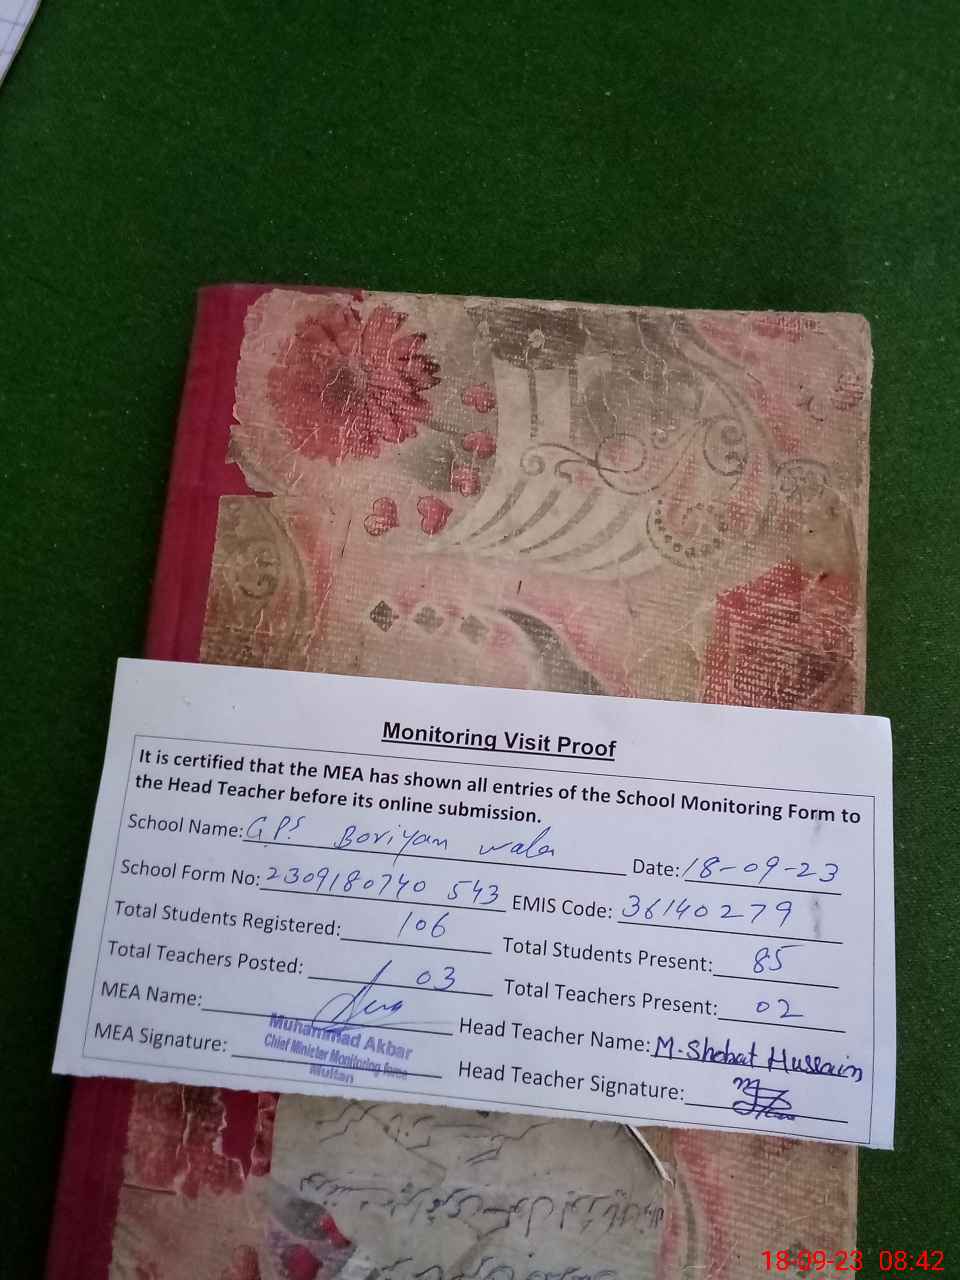 Monitoring Visit Proof
It is certified that the MEA has shown all entries of the School Monitoring Form to
the Head Teacher before its online submission.
School Name: G.P.S Boriyan wala Date: 18-09-23
School Form No: 2309180740 543 EMIS Code: 36140279
Total Students Registered: 106 Total Students Present: 85
Total Teachers Posted: 03 Total Teachers Present: 02
MEA Name: Head Teacher Name: M. Shobat Hussain
MEA Signature: Head Teacher Signature:
Muhammad Akbar
Chief Minister Monitoring force
Multan
18-09-23 08:42